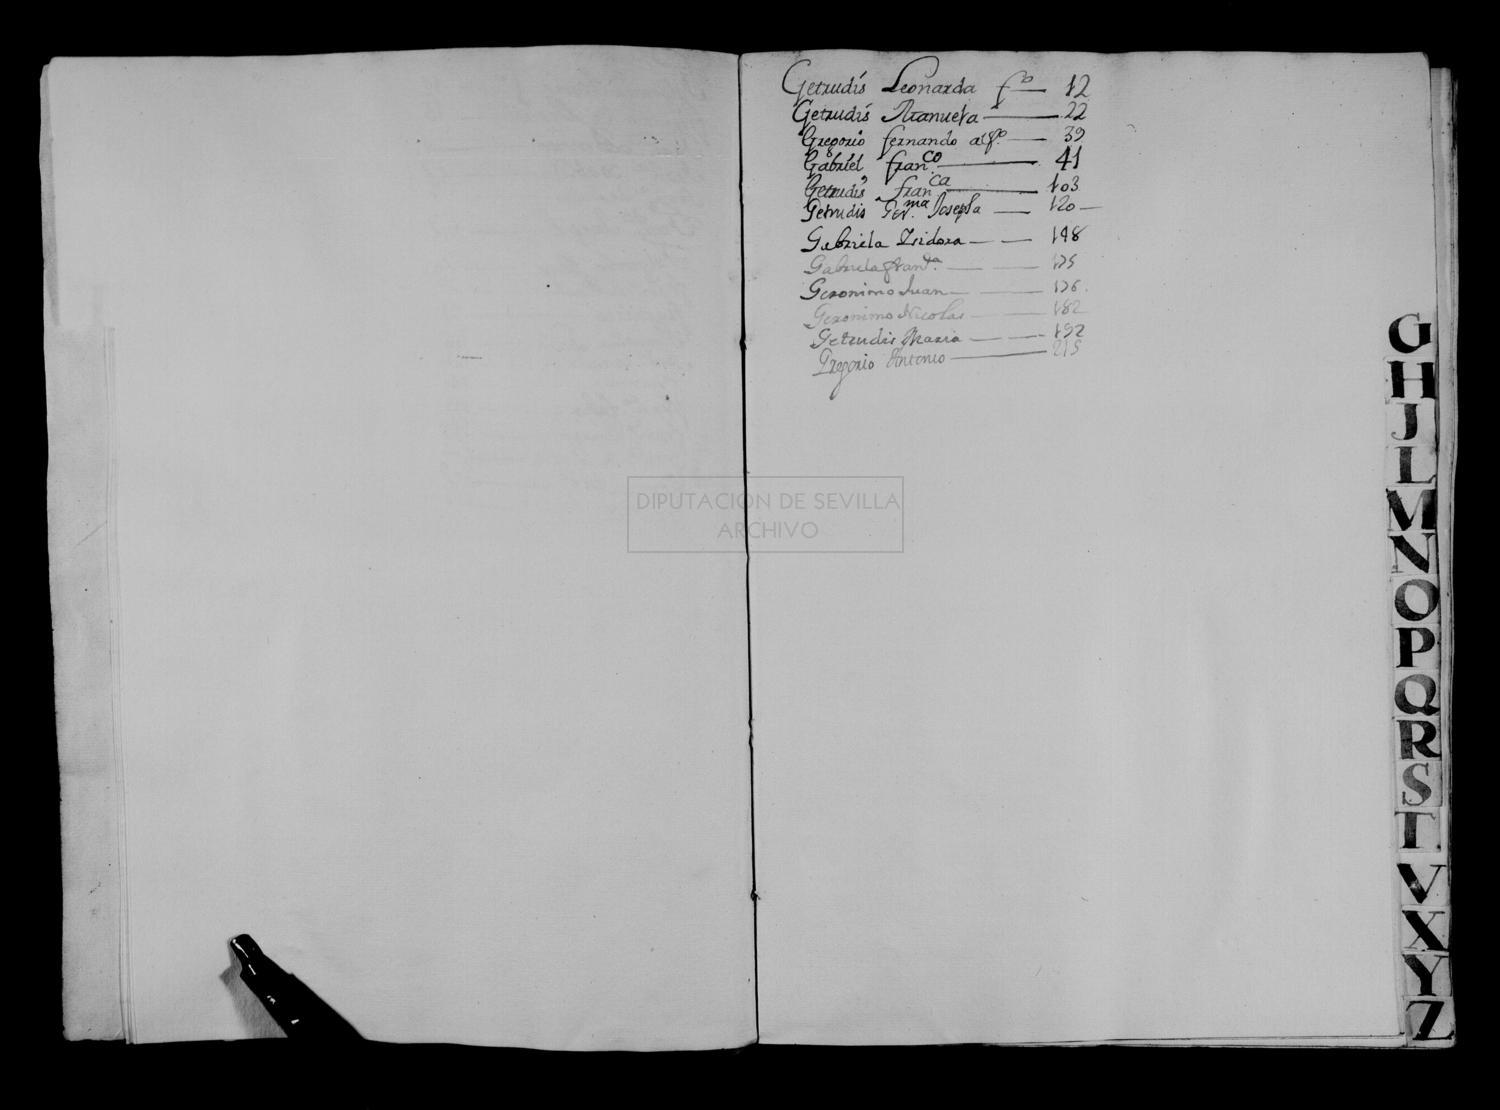 Getrudis Leonarda fo — 12
Getrudis Manuela — 22
Gregorio fernando alfo. — 39
Gabriel franco. — 41
Getrudis franca — 103
Getrudis Germa. Josepha — 120 —
Gabriela Isidora — — 148
Gabriela franca. — — 175
Geronimo Juan — — 176.
Geronimo Nicolas — — 182
Getrudis Maria — — 192
Gregorio Antonio — 215
DIPUTACION DE SEVILLA
ARCHIVO
G
H
J
L
M
N
O
P
Q
R
S
T
V
X
Y
Z